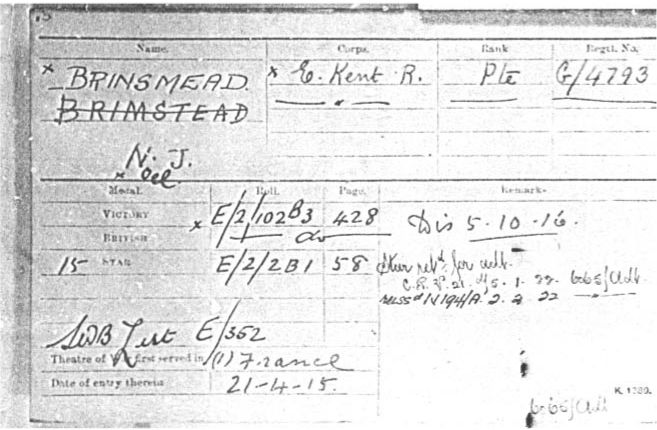 Name. Corps. Rank Regtl. No.
× BRINSMEAD. × E. Kent R. Pte G/4793
BRIMSTEAD
N. J.
×
Medal. Roll. Page. Remarks
VICTORY × E/2/102B3 428 Dis 5-10-16.
BRITISH
15 STAR E/2/2B1 58 Star retd. for adt.
C.R.V. 21. d/5. 1. 22. 6065/Adt.
NW/9/194/A. 2. 2. 22
SWB List E/352
Theatre of War first served in (1) France
Date of entry therein 21-4-15.
K. 1380.